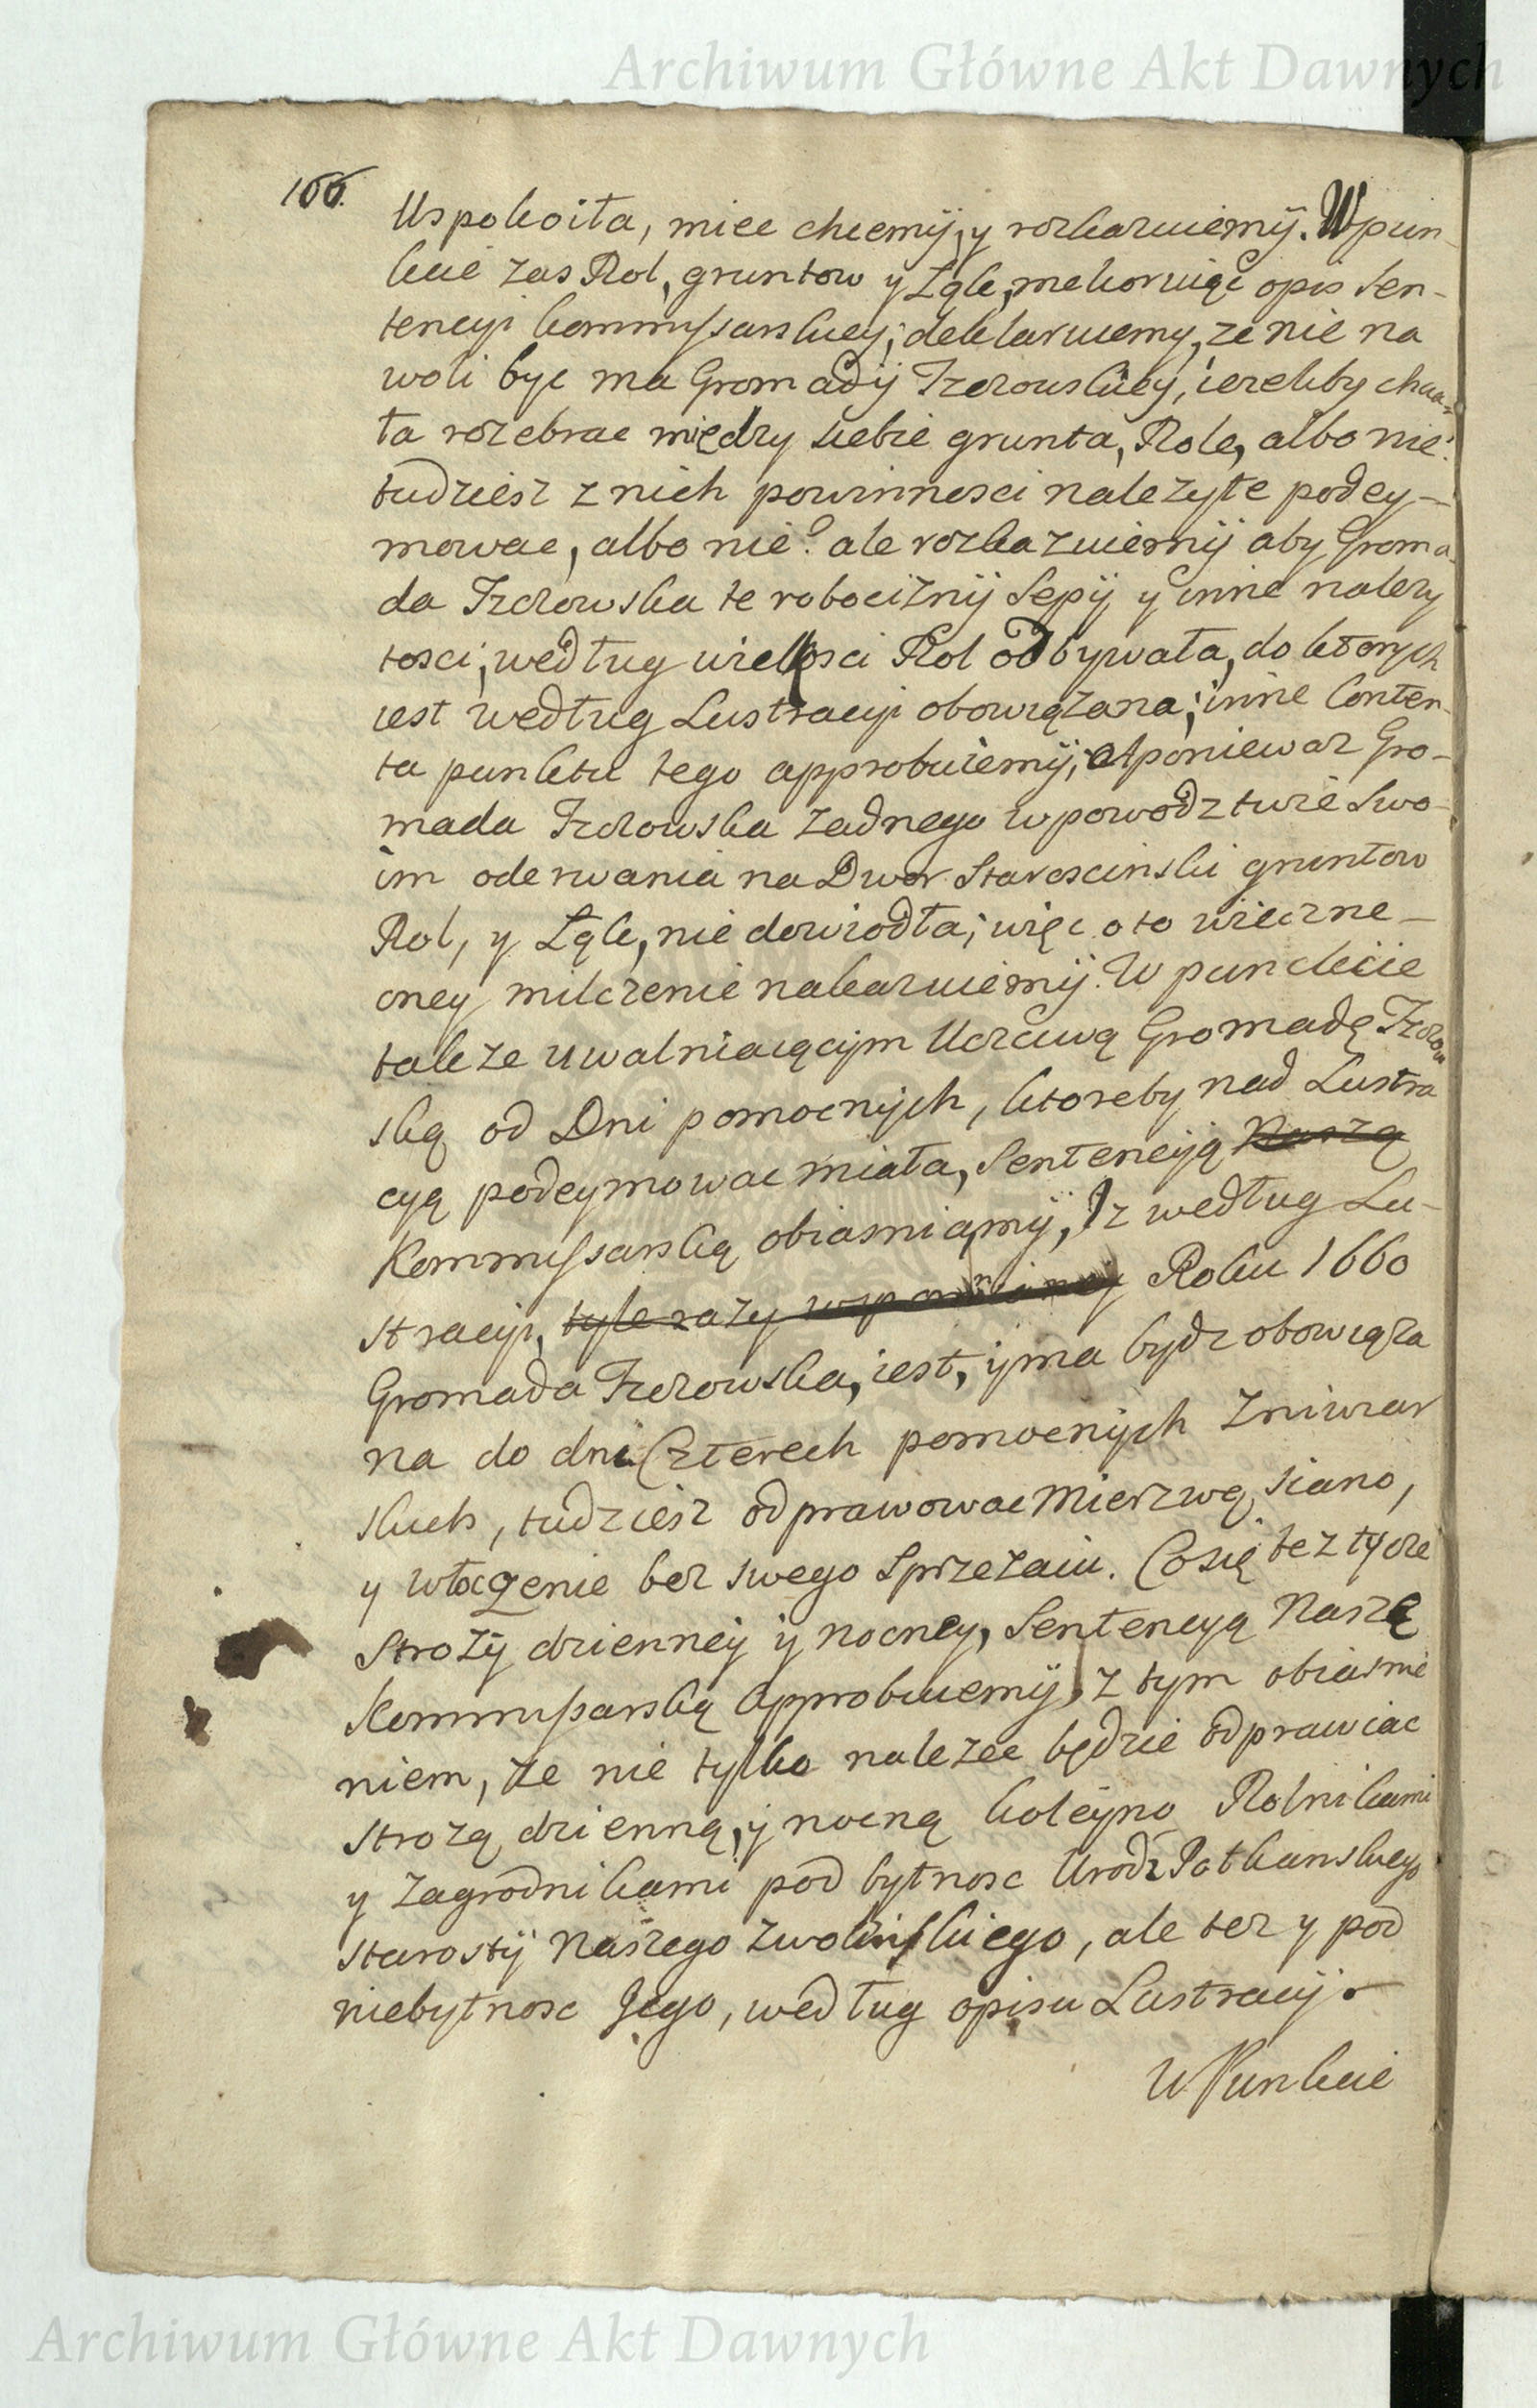 Archiwum Główne Akt Dawnych
166.
Uspokoiła, miec chcemÿ, y rozkazuiemÿ. W pun-
kcie zas Rol, gruntow y Łąk, mekoruiąc opis Sen-
tencyi kommissarskiey; deklaruiemy, ze nie na
woli byc ma Gromadÿ Jzerowskiey, iezeliby chcia-
ła rozebrac między siebie grunta, Role, albo nie?
tudziesz z nich powinnosci nalezyte podey-
mowac, albo nie? ale rozkazuiemÿ aby Groma-
da Jzerowska te robociznÿ Sepÿ y inne nalezy
tosci, według wielkosci Rol odbywała, do ktorych
iest według Lustracyi obowiązana; inne Conten-
ta punktu tego approbuiemÿ; A poniewaz Gro-
mada Jzerowska zadnego w powodztwie Swo-
im oderwania na Dwor Starosciński gruntow
Rol, y Łąk, nie dowiodła; więc o to wieczne
oney milczenie nakazuiemÿ. W punckcie
takze uwalniaiącÿm Uczciwą Gromadę Jzerow
ską od Dni pomocnÿch, ktoreby nad Lustra
cyą podeymowac miała, Sentencÿą Naszą
Kommissarską obiasniamÿ, Jz według Lu-
stracyi, tyle razy wspomnioney Roku 1660
Gromada Jzerowska, iest, ÿ ma bydz obowiąza
na do dni Czterech pomocnÿch Zniwiar
skich, tudziesz odprawowac Mierzwę, siano,
y włoczenie bez swego Sprzezaiu. Co się tez tÿcze
Strozÿ dzienneÿ ÿ nocney, Sentencyą Naszę
Kommissarską Approbuiemÿ, z tym obiasnie
niem, Ze nie tylko nalezec będzie odprawiac
Strozą dzienną, ÿ nocną koleÿno Rolnikami
y Zagrodnikami pod bytnosc Urodz Potkanskiego
Starostÿ Naszego Zwolinskiego, ale tez y pod
niebytnosc Jego, według opisu Lustracÿi.
W Punkcie
Archiwum Główne Akt Dawnych